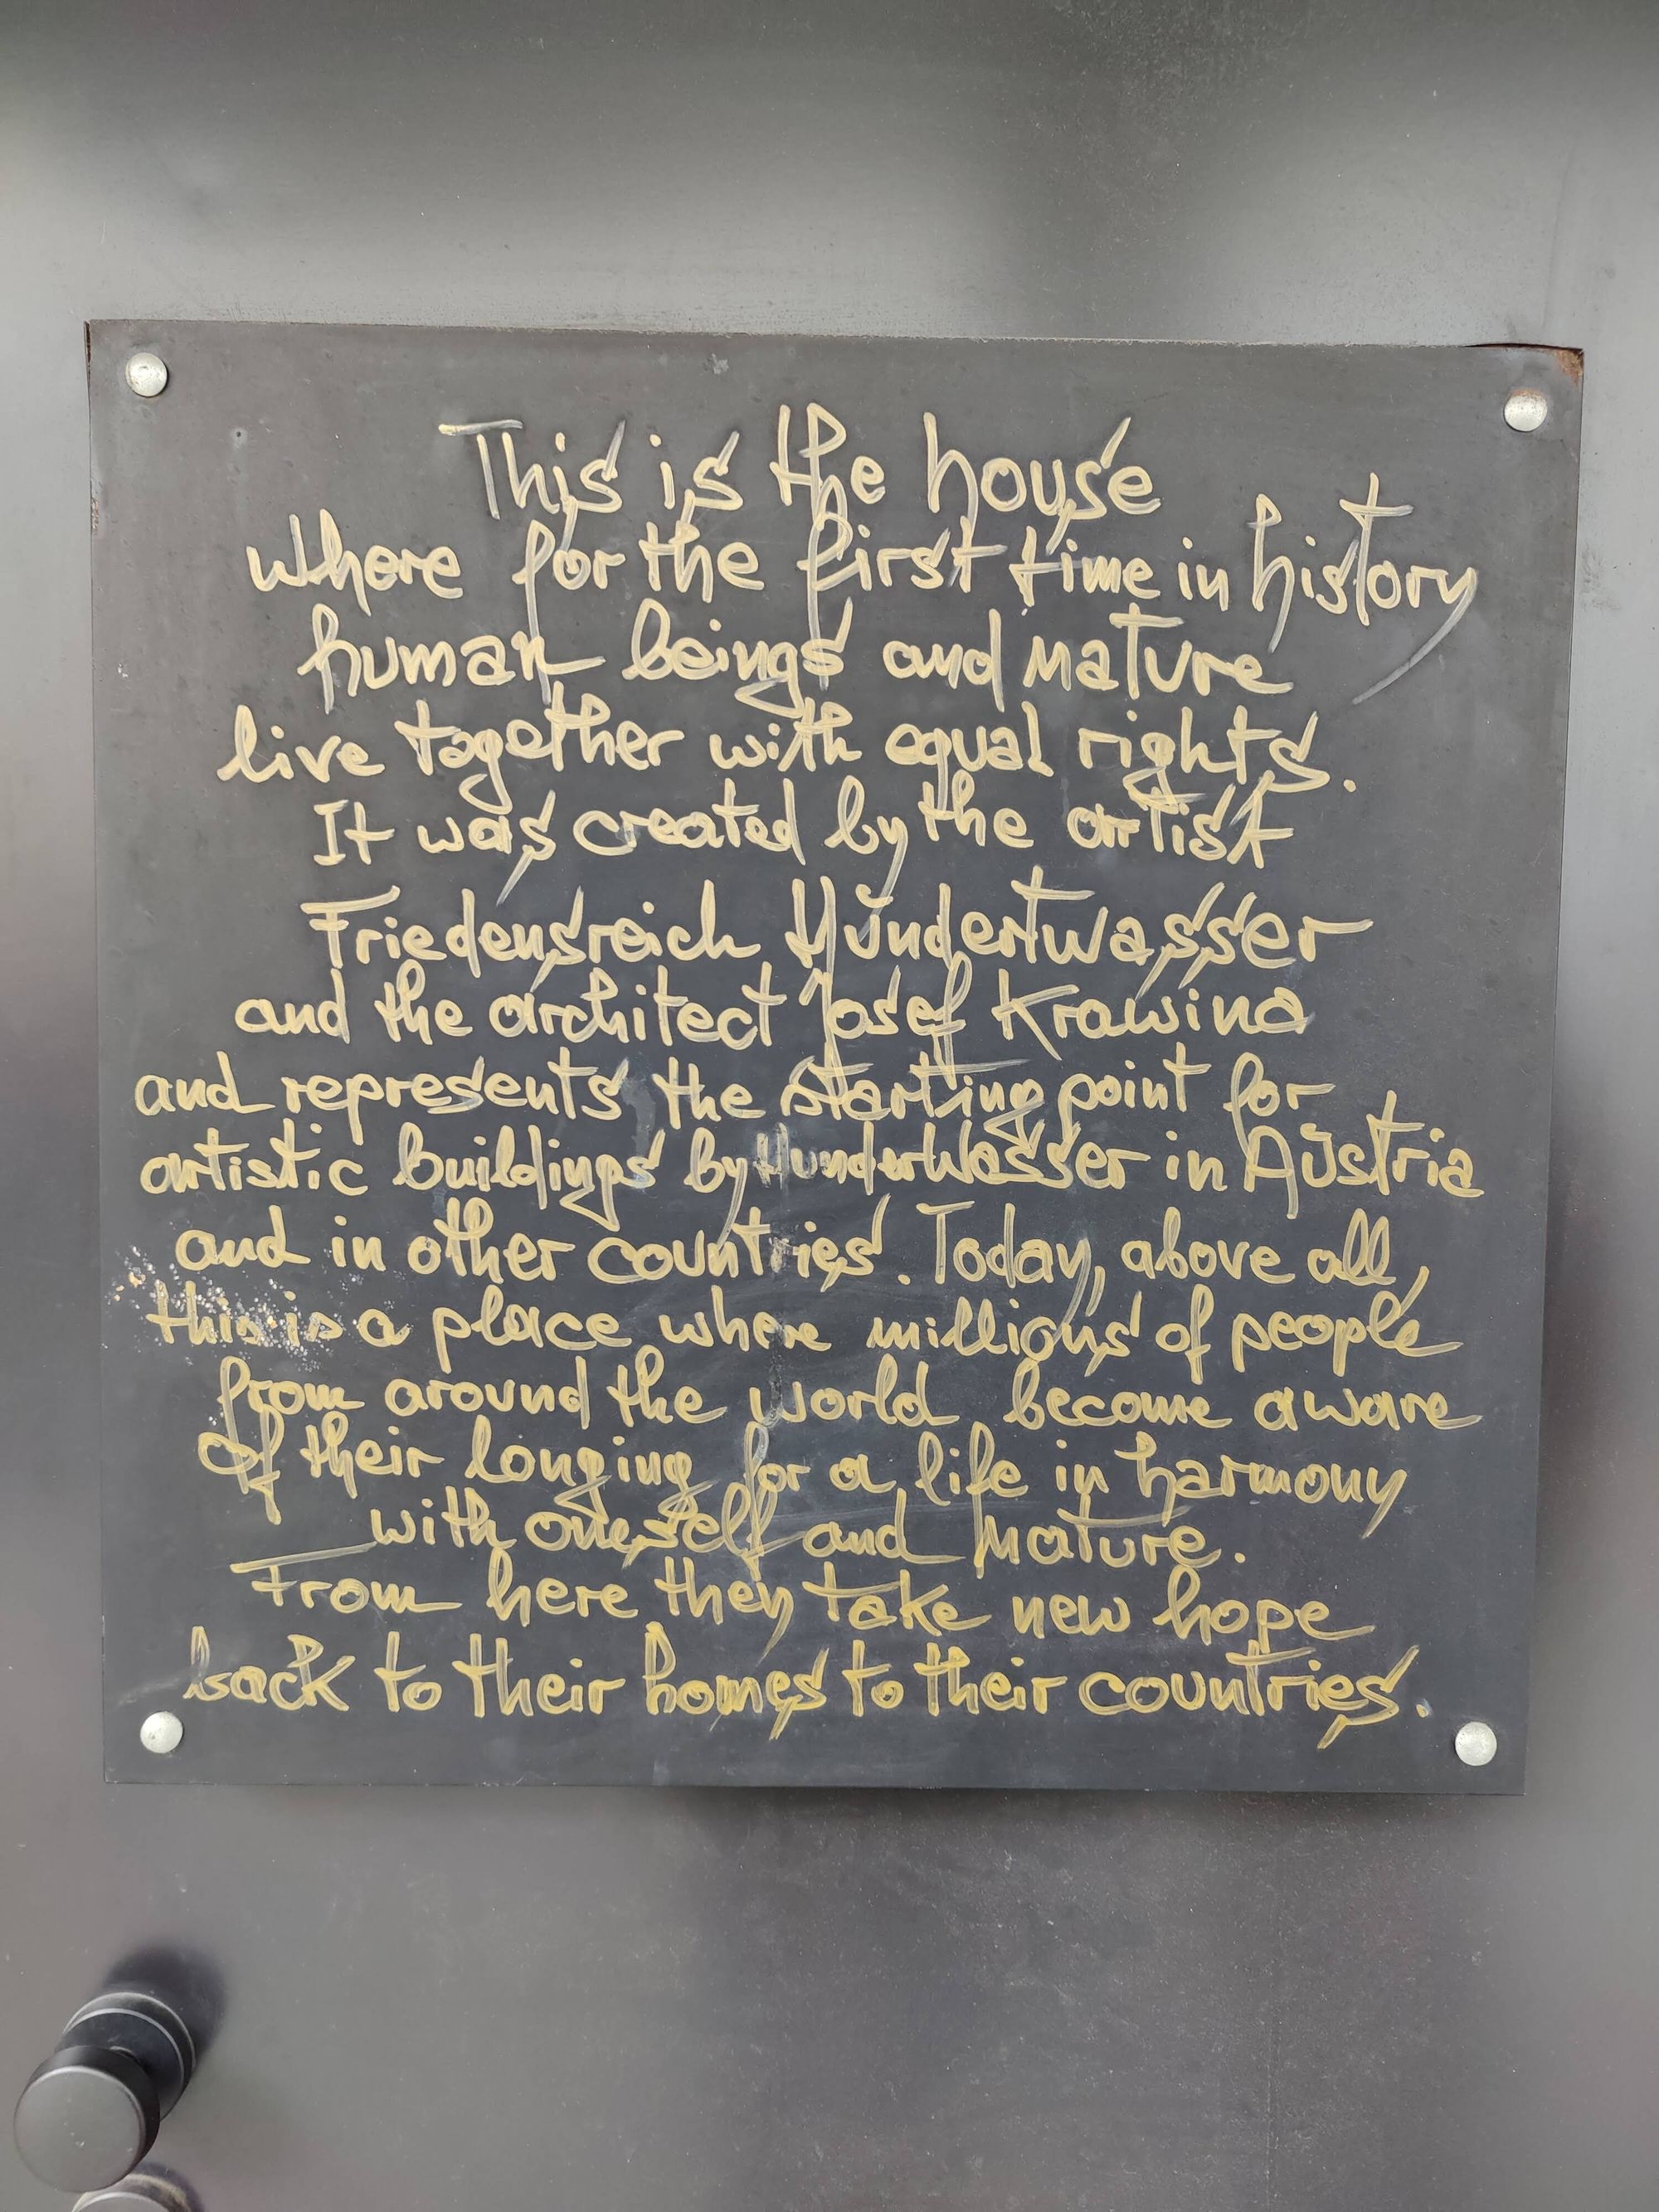 This is the house
where for the first time in history
human beings and nature
live together with equal rights.
It was created by the artist
Friedensreich Hundertwasser
and the architect Josef Krawina
and represents the starting point for
artistic buildings by Hundertwasser in Austria
and in other countries. Today, above all,
this is a place where millions of people
from around the world become aware
of their longing for a life in harmony
with oneself and nature.
From here they take new hope
back to their homes to their countries.